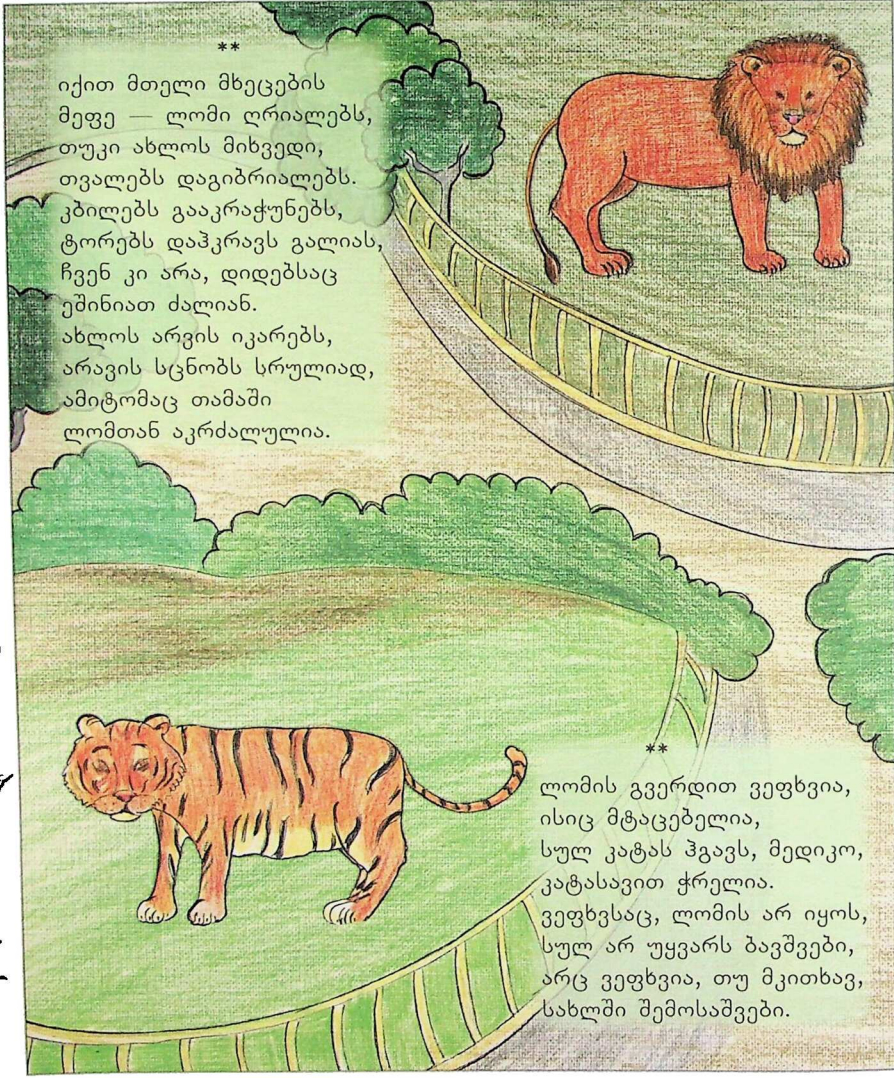 **
იქით მთელი მხეცების
მეფე — ლომი ღრიალებს,
თუკი ახლოს მიხვედი,
თვალებს დაგიბრიალებს.
კბილებს გააკრაჭუნებს,
ტორებს დაჰკრავს გალიას,
ჩვენ კი არა, დიდებსაც
ეშინიათ ძალიან.
ახლოს არვის იკარებს,
არავის სცნობს სრულიად,
ამიტომაც თამაში
ლომთან აკრძალულია.
**
ლომის გვერდით ვეფხვია,
ისიც მტაცებელია,
სულ კატას ჰგავს, მედიკო,
კატასავით ჭრელია.
ვეფხვსაც, ლომის არ იყოს,
სულ არ უყვარს ბავშვები,
არც ვეფხვია, თუ მკითხავ,
სახლში შემოსაშვები.